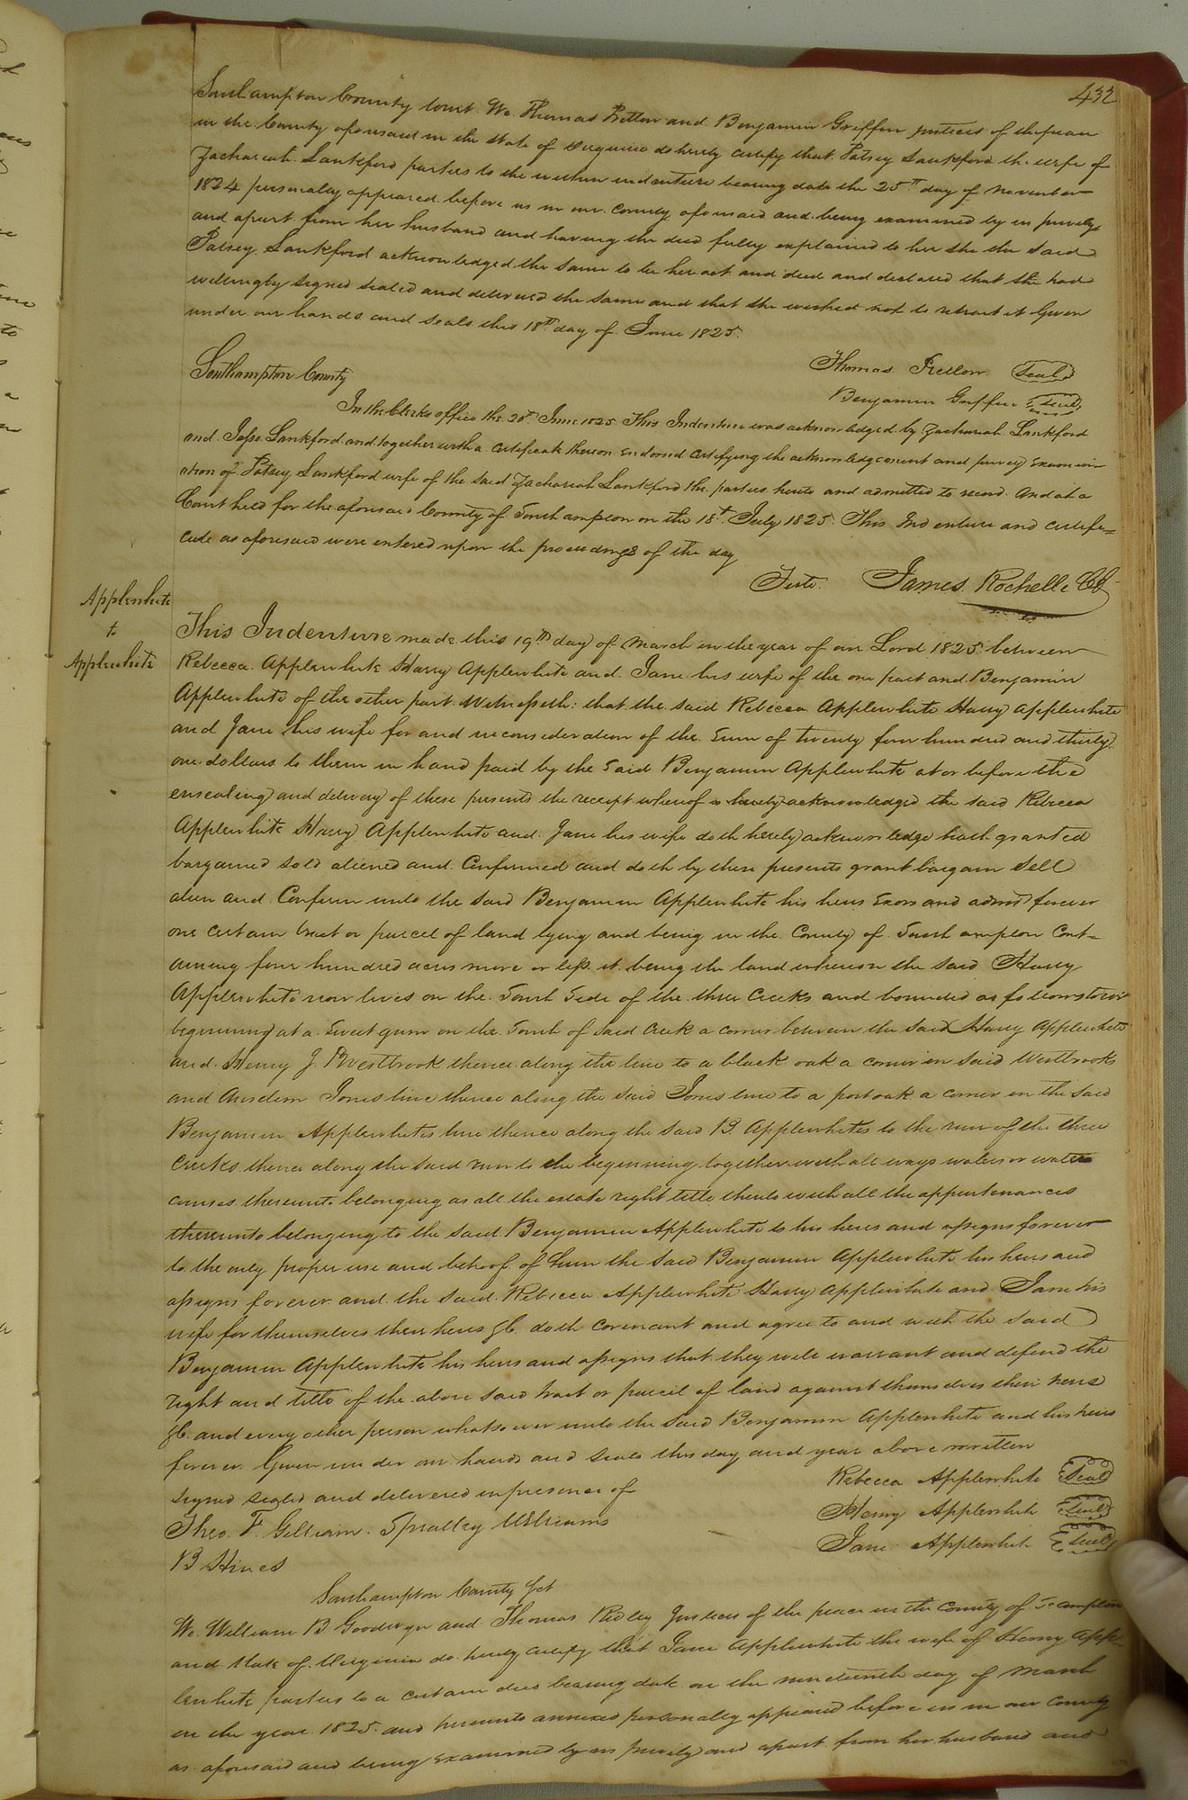 432
Southampton County Court. We Thomas Pretlow and Benjamin Griffin justices of the peace
in the County aforesaid in the State of Virginia do hereby certify that Patsey Lankford the wife of
Zachariah Lankford parties to the within indenture bearing date the 25th day of November
1824 personally appeared before us in our County aforesaid and being examined by us privily
and apart from her husband and having the deed fully explained to her she the said
Patsey Lankford acknowledged the same to be her act and deed and declared that she had
willingly signed sealed and delivered the same and that she wished not to retract it Given
under our hands and seals this 18th day of June 1825.
Thomas Pretlow (Seal)
Benjamin Griffin (Seal)
Southampton County
In the Clerks office the 20th June 1825 This Indenture was acknowledged by Zachariah Lankford
and Jesse Lankford and together with a Certificate thereon Endorsed Certifying the acknowledgement and privy Examin
ation of Patsey Lankford wife of the said Zachariah Lankford the parties hereto and admitted to record. And at a
Court held for the aforesaid County of Southampton on the 18th July 1825. This Indenture and certifi=
cate as aforesaid were entered upon the proceedings of the day
Teste. James Rochelle CC
Applewhite
to
Applewhite
This Indenture made this 19th day of March in the year of our Lord 1825 between
Rebecca Applewhite Harry Applewhite and Jane his wife of the one part and Benjamin
Applewhite of the other part Witnesseth: that the said Rebecca Applewhite Harry Applewhite
and Jane his wife for and in consideration of the Sum of twenty four hundred and thirty
one dollars to them in hand paid by the said Benjamin Applewhite at or before the
ensealing and delivery of these presents the receipt whereof is hereby acknowledged the said Rebecca
Applewhite Harry Applewhite and Jane his wife doth hereby acknowledge hath granted
bargained sold aliened and Confirmed and doth by these presents grant bargain Sell
alien and Confirm unto the said Benjamin Applewhite his heirs Exors and admrs forever
one certain tract or parcel of land lying and being in the County of Southampton Cont=
aining four hundred acres more or less it being the land whereon the said Harry
Applewhite now lives on the South Side of the three Creeks and bounded as follows towit
beginning at a Sweet gum on the South of said Creek a corner between the said Harry Applewhite
and Henry J. Westbrook thence along the line to a black oak a corner in said Westbrooks
and Jones line thence along the said Jones line to a post oak a corner in the said
Benjamin Applewhites line thence along the said B. Applewhites to the run of the three
Creeks thence along the said run to the beginning together with all ways waters or water
courses thereunto belonging as all the estate right title thereto with all the appurtenances
thereunto belonging to the said Benjamin Applewhite to his heirs and assigns forever
to the only proper use and behoof of him the said Benjamin Applewhite his heirs and
assigns forever and the said Rebecca Applewhite Harry Applewhite and Jane his
wife for themselves their heirs &c doth covenant and agree to and with the said
Benjamin Applewhite his heirs and assigns that they will warrant and defend the
right and title of the above said tract or parcel of land against themselves their heirs
&c and every other person whatsoever unto the said Benjamin Applewhite and his heirs
forever Given under our hands and seals this day and year above written
Signed sealed and delivered in presence of
Thos. F. Gilliam. Spratley Williams
B Hines
Rebecca Applewhite (Seal)
Henry Applewhite (Seal)
Jane Applewhite (Seal)
Southampton County Sct
We William B Goodwyn and Thomas Ridley Justices of the peace in the County of S.ampton
and State of Virginia do hereby certify that Jane Applewhite the wife of Henry App=
lewhite parties to a certain deed bearing date on the nineteenth day of March
in the year 1825 and hereunto annexed personally appeared before us in our County
as aforesaid and being Examined by us privily and apart from her husband and